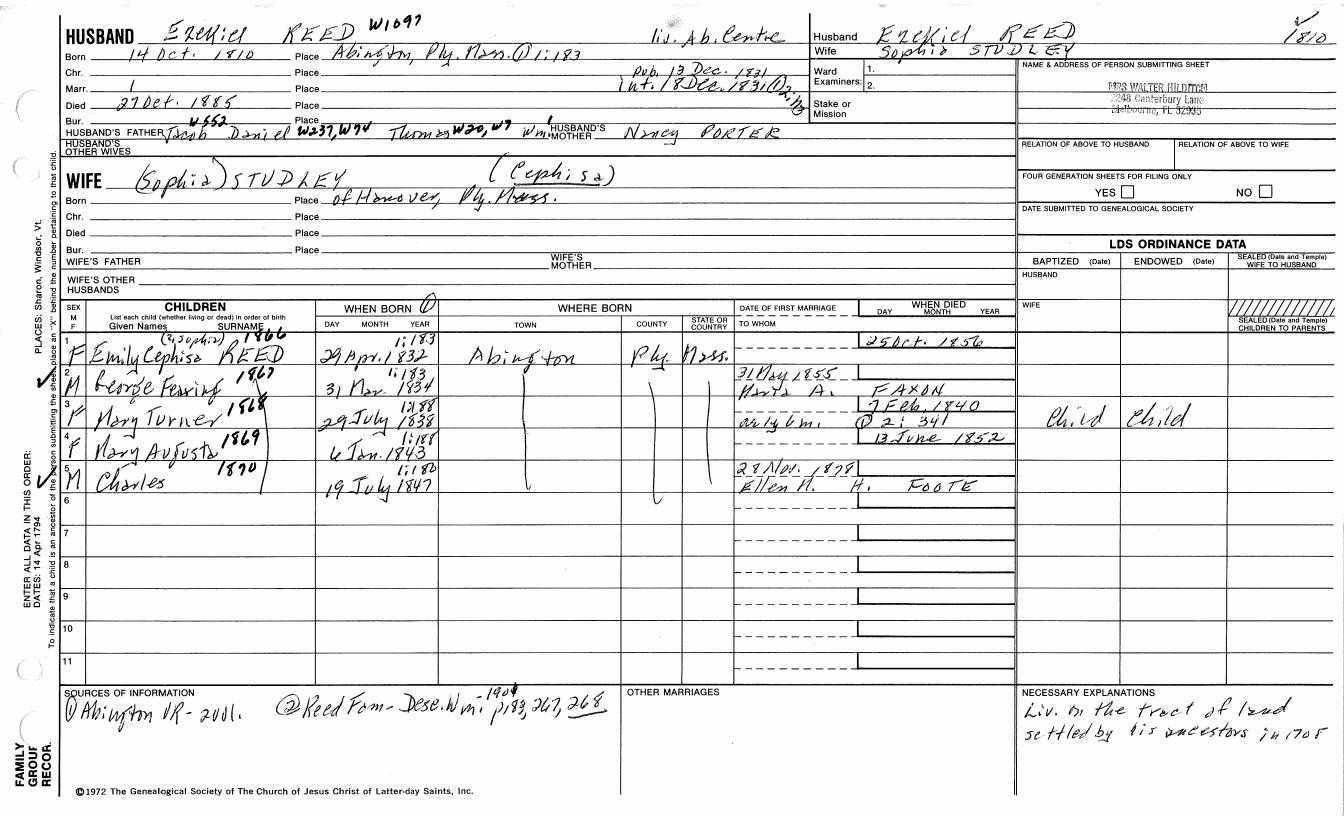 HUSBAND Ezekiel REED W1097 liv. Ab. Centre
Born 14 Oct. 1810 Place Abington, Ply. Mass. ① 1:183
Chr. Place pub. 13 Dec. 1831
Marr. 1 Place int. 18 Dec. 1831 ① 2:173
Died 27 Oct. 1885 Place
Bur. Place
W552
HUSBAND'S FATHER Jacob Daniel W237, W74 Thomas W20, W7 Wm.1 HUSBAND'S MOTHER Nancy PORTER
HUSBAND'S OTHER WIVES
WIFE (Sophia) STUDLEY (Cephisa)
Born Place of Hanover, Ply. Mass.
Chr. Place
Died Place
Bur. Place
WIFE'S FATHER WIFE'S MOTHER
WIFE'S OTHER HUSBANDS
Husband Ezekiel REED 1810
Wife Sophia STUDLEY
Ward Examiners: 1.
2.
Stake or Mission
NAME & ADDRESS OF PERSON SUBMITTING SHEET
MRS WALTER HILDITCH
2248 Canterbury Lane
Melbourne, FL 32935
RELATION OF ABOVE TO HUSBAND RELATION OF ABOVE TO WIFE
FOUR GENERATION SHEETS FOR FILING ONLY
YES NO
DATE SUBMITTED TO GENEALOGICAL SOCIETY
LDS ORDINANCE DATA
BAPTIZED (Date) ENDOWED (Date) SEALED (Date and Temple) WIFE TO HUSBAND
HUSBAND
WIFE
SEALED (Date and Temple) CHILDREN TO PARENTS
SEX M F CHILDREN WHEN BORN ① WHERE BORN DATE OF FIRST MARRIAGE WHEN DIED
List each child (whether living or dead) in order of birth
Given Names SURNAME DAY MONTH YEAR TOWN COUNTY STATE OR COUNTRY TO WHOM DAY MONTH YEAR
1 (2, Sophia) 1866 1:183 25 Oct. 1856
F Emily Cephisa REED 29 Apr. 1832 Abington Ply. Mass.
2 1867 1:183 31 May 1855
M George Fearing 31 Mar. 1834 Maria A. FAXON
3 1868 1:188 7 Feb. 1840
F Mary Turner 29 July 1838 ae 1y 6m. ① 2:341 Child Child
4 1869 1:188 13 June 1852
F Mary Augusta 6 Jan. 1843
5 1870 1:180 28 Nov. 1878
M Charles 19 July 1847 Ellen H. H. FOOTE
6
7
8
9
10
11
SOURCES OF INFORMATION
① Abington VR - 2vol. ② Reed Fam - Desc. Wm. - 1901 p. 183, 267, 268
OTHER MARRIAGES
NECESSARY EXPLANATIONS
Liv. on the tract of land
settled by his ancestors in 1708
©1972 The Genealogical Society of The Church of Jesus Christ of Latter-day Saints, Inc.
ENTER ALL DATA IN THIS ORDER:
DATES: 14 Apr 1794 PLACES: Sharon, Windsor, Vt.
To indicate that a child is an ancestor of the person submitting the sheet, place an "X" behind the number pertaining to that child.
FAMILY
GROUP
RECOR